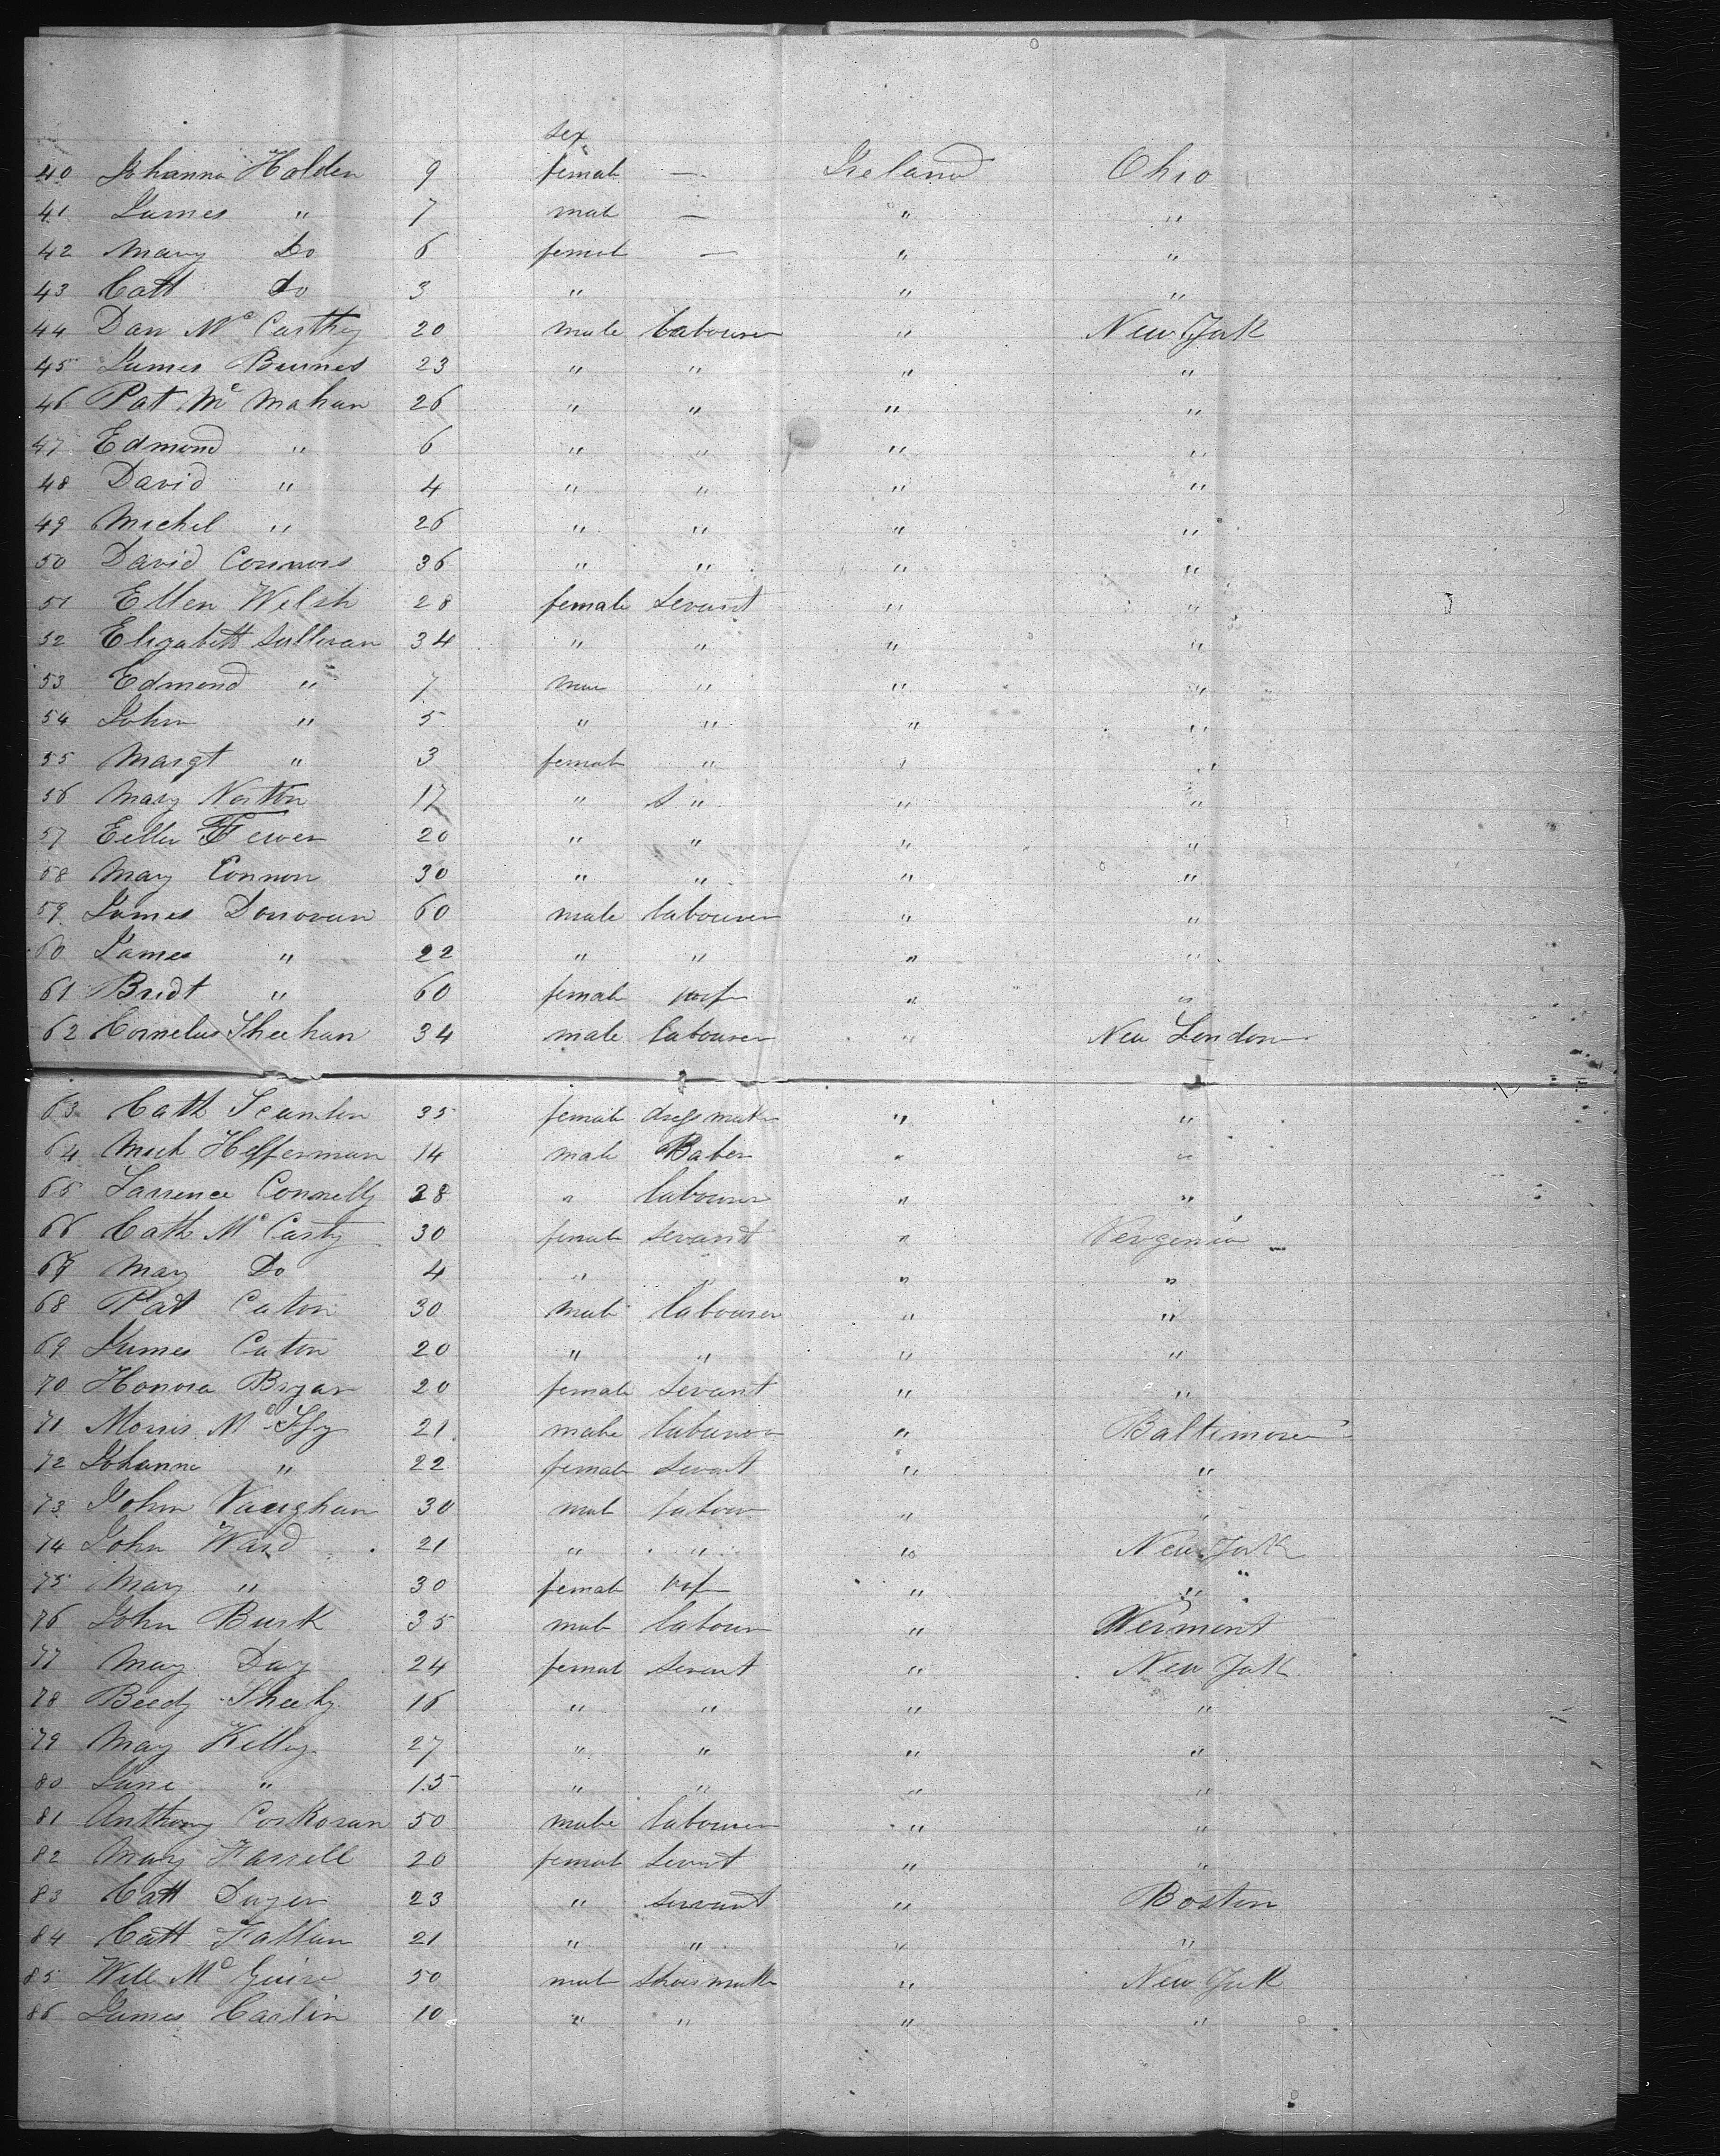 sex
40 Johanna Holden 9 female — Ireland Ohio
41 James " 7 male — " "
42 Mary Do 6 female — " "
43 Catt do 3 " " "
44 Dan McCarthy 20 male labourer " New York
45 James Burnes 23 " " " "
46 Pat McMahan 26 " " " "
47 Edmond " 6 " " " "
48 David " 4 " " " "
49 Michel " 26 " " " "
50 David Connors 36 " " " "
51 Ellen Welsh 28 female servant " "
52 Elizabeth Sullivan 34 " " " "
53 Edmond " 7 " " "
54 John " 5 " " " "
55 Margt " 3 female " " "
56 Mary Norton 17 " s " " "
57 20 " " " "
58 Mary Connon 30 " " " "
59 James Donovan 60 male labourer " "
60 James " 22 " " " "
61 Bridt " 60 female " "
62 Cornelius Sheehan 34 male labourer " New London
63 Cath Scanlen 35 female " "
64 Mich Hefferman 14 male Baker " "
65 Larrence Connelly 28 " labourer " "
66 Cath McCarty 30 female servant " Vergenia
67 Mary Do 4 " " " "
68 Pat Caton 30 male labourer " "
69 James Caton 20 " " " "
70 Honora Bryan 20 female servant " "
71 Morris 21 male labourer " Baltimore
72 Johanna " 22 female servant " "
73 John Vaughan 30 male labour " "
74 John Ward 21 " " " New York
75 Mary " 30 female " "
76 John Burk 35 male labourer " Vermont
77 Mary Day 24 female servant " New York
78 Beedy Sheehy 16 " " " "
79 Mary Kelley 27 " " " "
80 Jane " 15 " " " "
81 Anthony Corkoran 50 male labourer " "
82 Mary Farrell 20 female servant " "
83 Catt Dwyer 23 " servant " Boston
84 Catt Fallan 21 " " " "
85 Will McGuire 50 male " New York
86 James Carlin 10 " " " "